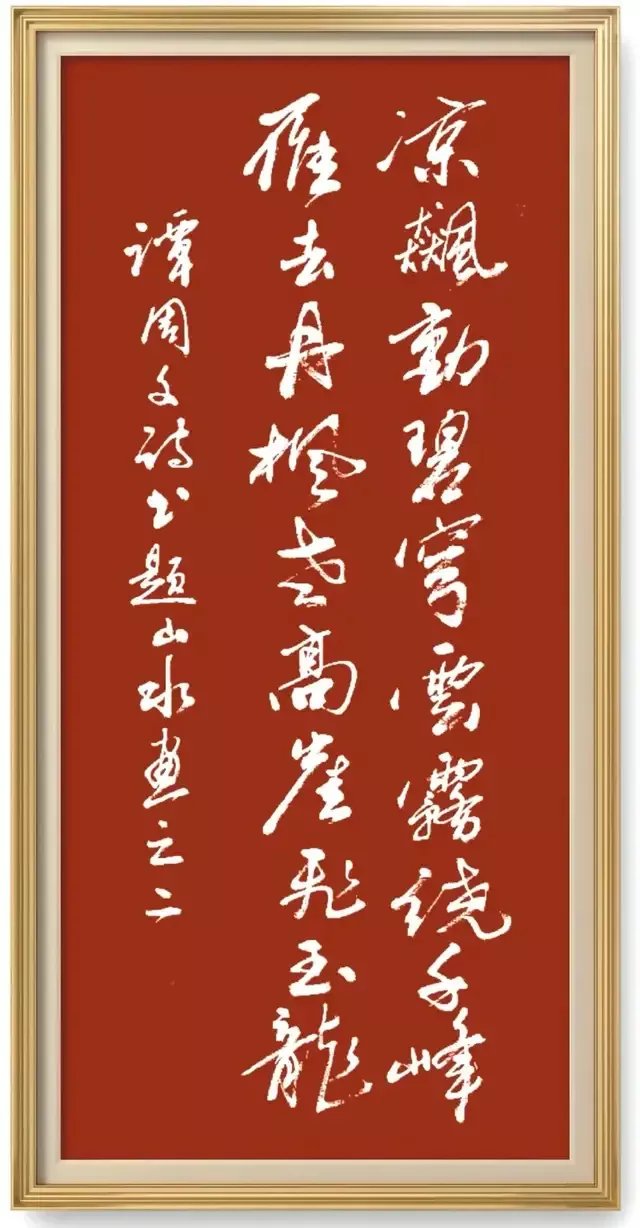 凉飆動碧穹雲霧绕千峰
雁去丹楓老高崖飛玉龍
譚周文诗书題山水畫之二